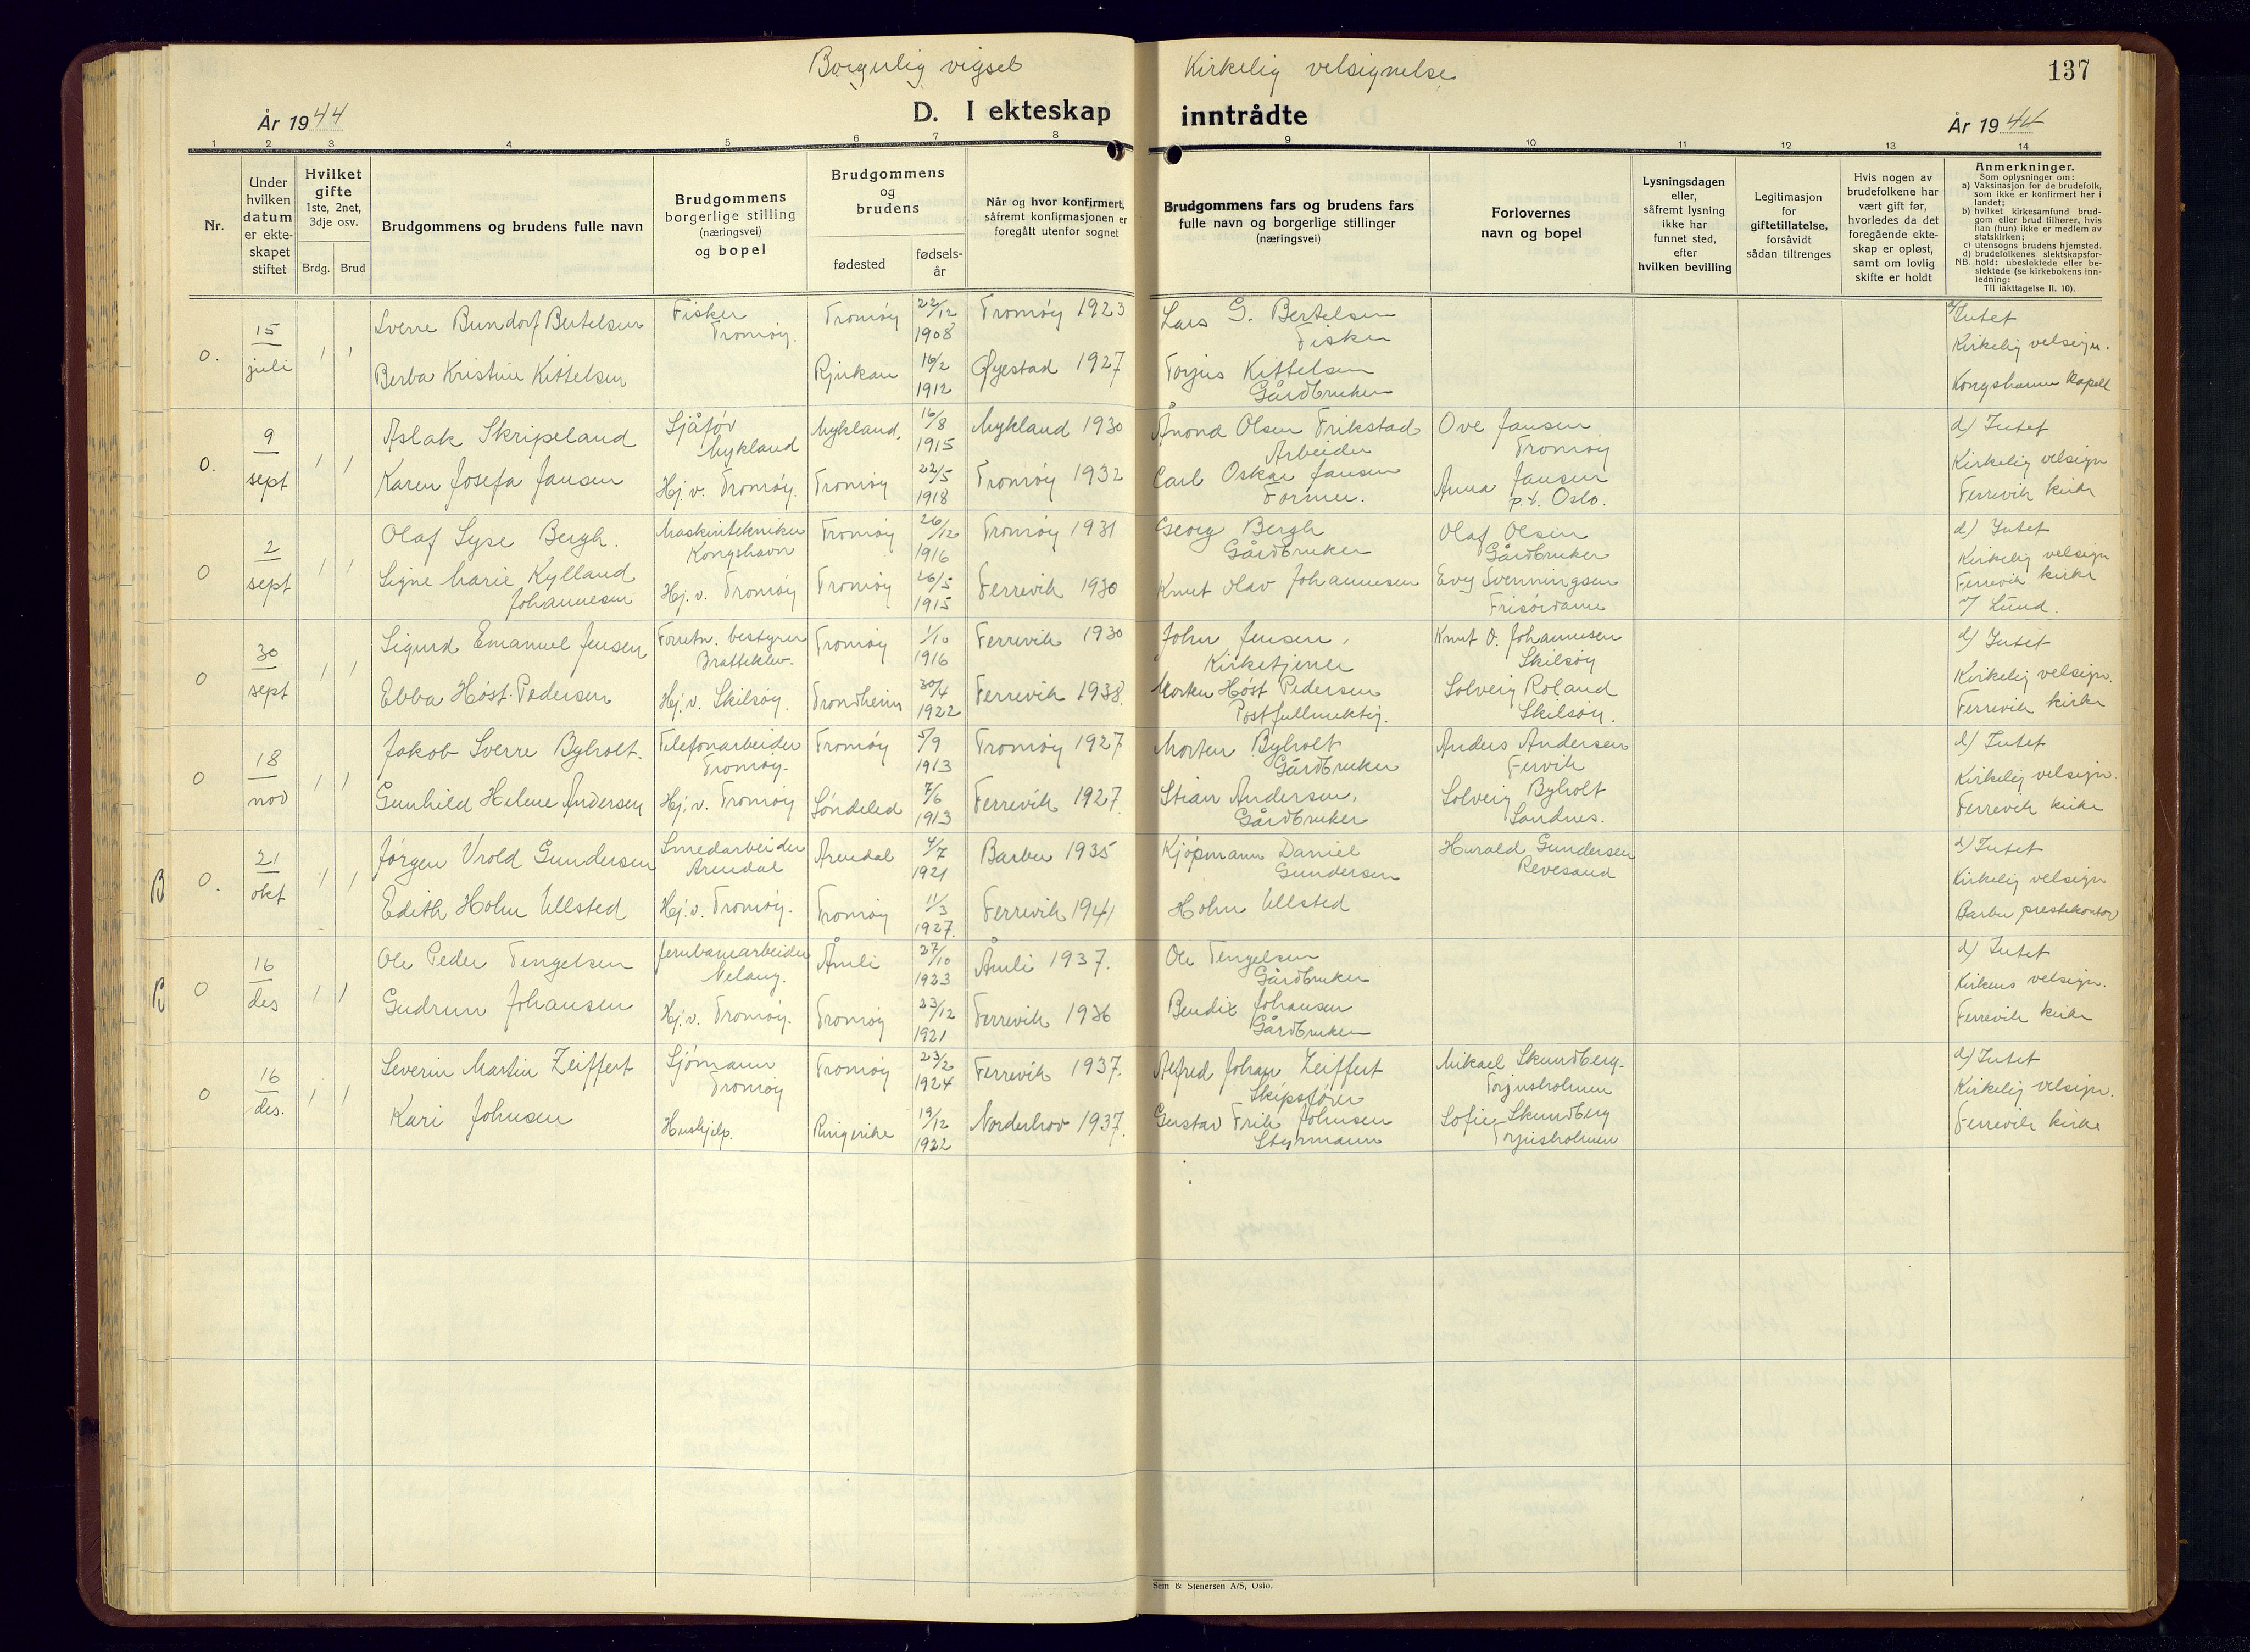 Borgerlig vigsel
Kirkelig velsignelse
137
År 1944
D. I ekteskap
inntrådte
År 1944
1 2 3 4 5 6 7 8 9 10 11 12 13 14
Nr.
Under
hvilken
datum
er ekte-
skapet
stiftet
Hvilket
gifte
1ste, 2net,
3dje osv.
Brdg. Brud
Brudgommens og brudens fulle navn
Brudgommens
borgerlige stilling
(næringsvei)
og bopel
Brudgommens
og
brudens
fødested
fødsels-
år
Når og hvor konfirmert,
såfremt konfirmasjonen er
foregått utenfor sognet
Brudgommens fars og brudens fars
fulle navn og borgerlige stillinger
(næringsvei)
Forlovernes
navn og bopel
Lysningsdagen
eller,
såfremt lysning
ikke har
funnet sted,
efter
hvilken bevilling
Legitimasjon
for
giftetillatelse,
forsåvidt
sådan tiltrenges
Hvis nogen av
brudefolkene har
vært gift før,
hvorledes da det
foregående ekte-
skap er opløst,
samt om lovlig
skifte er holdt
Anmerkninger.
Som oplysninger om:
a) Vaksinasjon for de brudefolk,
som ikke er konfirmert her i
landet;
b) hvilket kirkesamfund brud-
gom eller brud tilhører, hvis
han (hun) ikke er medlem av
statskirken;
c) utensogns brudens hjemsted.
d) brudefolkenes slektskapsfor-
NB. hold: ubeslektede eller be-
slektede (se kirkebokens inn-
ledning:
Til iakttagelse II. 10).
0. 15 juli 1 1
Sverre Bundorf Bertelsen Fisker Tromøy. Tromøy 22/12 1908 Tromøy 1923 Lars G. Bertelsen Fisker
Berba Kristine Kittelsen Rjukan 16/2 1912 Øyestad 1927 Torjus Kittelsen Gårdbruker
d) Intet
Kirkelig velsign.
Kongshavn kapell
0. 9 sept 1 1
Aslak Skripeland Sjåfør Mykland Mykland. 16/8 1915 Mykland 1930 Ånond Olsen Frikstad Arbeider Ove Jansen Tromøy
Karen Josefa Jansen Hj.v. Tromøy. Tromøy 22/5 1918 Tromøy 1932 Carl Oskar Jansen Former. Anna Jansen p.t. Oslo.
d) Intet
Kirkelig velsign
Færrevik kirke
0 2 sept 1 1
Olaf Lyse Bergh. Maskintekniker Kongshavn Tromøy 26/12 1916 Tromøy 1931 Georg Bergh Gårdbruker Olaf Olsen Gårdbruker
Signe Marie Kylland Johannesen Hj.v. Tromøy Tromøy 26/5 1915 Færrevik 1930 Knut Olav Johannesen Evy Svenningsen Frisørdame
d) Intet
Kirkelig velsign
Færrevik kirke
v/ Lund.
0 30 sept 1 1
Sigurd Emanuel Jensen Forretn. bestyrer Brattekleiv. Tromøy 1/10 1916 Færrevik 1930 John Jensen, Kirketjener Knut O. Johannesen Skilsøy
Ebba Høst-Pedersen Hj.v. Skilsøy. Trondheim 30/4 1922 Færrevik 1938. Morten Høst Pedersen Postfullmektig. Solveig Roland Skilsøy.
d) Intet
Kirkelig velsign.
Færrevik kirke
0 18 nov 1 1
Jakob Sverre Byholt. Telefonarbeider Tromøy. Tromøy 5/9 1913 Tromøy 1927 Morten Byholt Gårdbruker Anders Andersen Fervik
Gunhild Helene Andersen Hj.v. Tromøy Søndeled 7/6 1913 Færrevik 1927. Stian Andersen, Gårdbruker Solveig Byholt Sandnes.
d) Intet
Kirkelig velsign.
Færrevik kirke
B 0. 21 okt 1 1
Jørgen Vrold Gundersen Smedarbeider Arendal Arendal 4/7 1921 Barbu 1935 Kjøpmann Daniel Gundersen Harald Gundersen Revesand
Edith Holm Ullsted Hj.v. Tromøy. Tromøy 11/3 1927. Færrevik 1941 Holm Ullsted
d) Intet
Kirkelig velsign
Barbu prestekontor
B 0 16 des 1 1
Ole Peder Tengelsen Jernbanearbeider Nelaug. Åmli 27/10 1923 Åmli 1937. Ole Tengelsen Gårdbruker
Gudrun Johansen Hj.v. Tromøy. Tromøy 23/12 1921 Færrevik 1936 Bendix Johansen Gårdbruker
d) Intet
Kirkens velsign.
Færrevik kirke
0 16 des. 1 1
Severin Martin Zeiffert Sjømann Tromøy Tromøy 23/2 1924 Færrevik 1937. Alfred Johan Zeiffert Skipsfører Mikael Skundberg. Torjusholmen
Kari Johnsen Hushjelp. Ringerike 19/12 1922 Norderhov 1937. Gustav Erik Johnsen Styrmann Sofie Skundberg Torjusholmen
d) Intet
Kirkelig velsign.
Færrevik kirke
Sem & Stenersen A/S, Oslo.